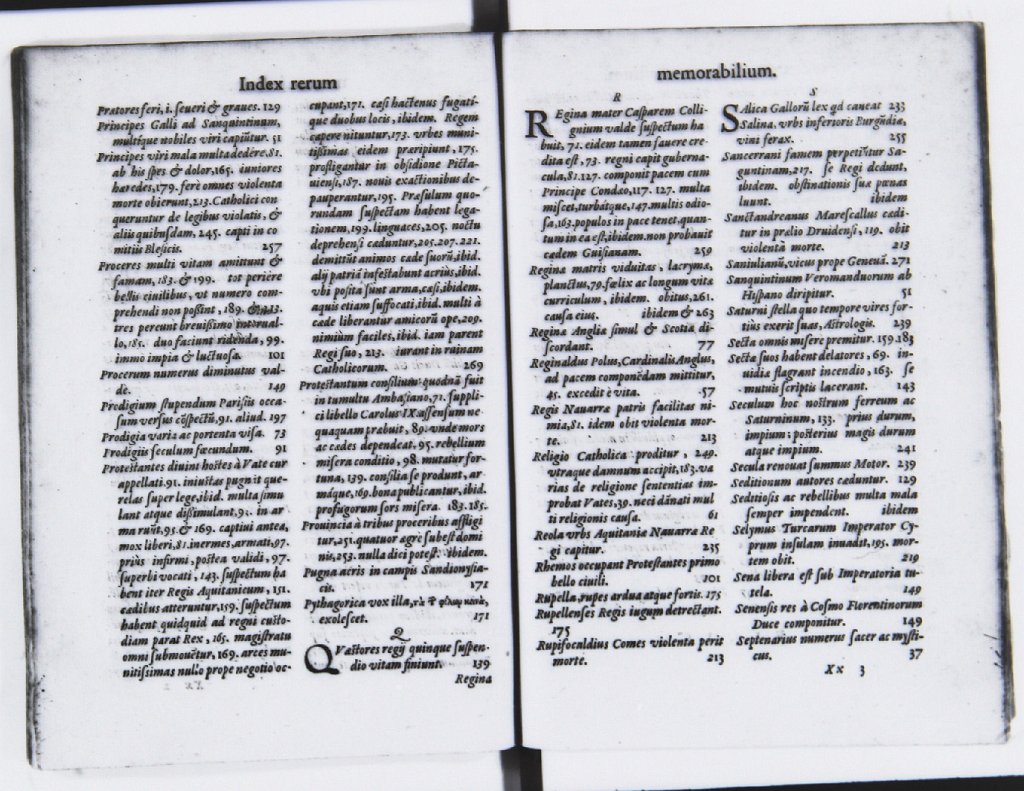 Index rerum
Prætores feri, i. seueri & graues. 129
Principes Galli ad Sanquintinum,
multiq́ue nobiles viri capiūtur. 51
Principes viri mala multa dedêre, 81.
ab his spes & dolor, 165. iuniores
hæredes, 179. ferè omnes violenta
morte obierunt, 213. Catholici con
queruntur de legibus violatis, &
aliis quibusdam, 245. capti in co
mitiis Blesicis. 257
Proceres multi vitam amittunt &
famam, 183. & 199. tot periere
bellis ciuilibus, vt numero com-
prehendi non possint, 189.
tres pereunt breuissimo interual-
lo, 181. duo faciunt ridenda, 99.
immo impia & luctuosa. 101
Procerum numerus diminutus val-
de. 149
Prodigium stupendum Parisiis occa-
sum versus cōspectū, 91. aliud. 197
Prodigia varia ac portenta visa. 73
Prodigiis seculum fœcundum. 91
Protestantes diuini hostes à Vate cur
appellati. 91. iniustas pugnit que-
relas super lege, ibid. multa simu
lant atque dissimulant, 93. in ar
ma ruūt, 95. & 169. captiui antea,
mox liberi, 81. inermes, armati, 97.
priùs infirmi, postea validi, 97.
superbi vocati, 143. suspectum ha
bent iter Regis Aquitanicum, 151.
cædibus atteruntur, 159. suspectum
habent quidquid ad regni custo-
diam parat Rex, 165. magistratu
omni submouētur, 169. arces mu-
nitissimas nullo prope negotio oc-
cupant, 171. casi hactenus fugati-
que duobus locis, ibidem. Regem
capere nituntur, 173. vrbes muni-
tissimas eidem præripiunt, 175.
profligantur in obsidione Picta-
uiensi, 187. nouis exactionibus de-
pauperantur, 195. Præsulum quo-
rundam suspectam habent lega-
tionem, 199. linguaces, 205. noctu
deprehensi cæduntur, 205. 207. 221.
demittūt animos cæde suorū, ibid.
alij patriā infestabunt acriùs, ibid.
vbi posita sunt arma, cæsi, ibidem.
aquis etiam suffocati, ibid. multi à
cæde liberantur amicorū ope, 209.
nimiùm faciles, ibid. iam parent
Regi suo, 213. iurant in ruinam
Catholicorum. 269
Protestantum consilium quodnā fuit
in tumultu Ambasiano, 71. suppli-
ci libello Carolus IX assensum ne
quaquam præbuit, 89. vnde mors
ac cædes dependeat. 95. rebellium
misera conditio, 98. mutatur for-
tuna, 139. consilia se produnt, ar-
máque, 169. bona publicantur, ibid.
profugorum sors misera. 183. 185.
Prouincia à tribus proceribus affligi
tur, 251. quatuor ægrè subest domi
nis, 253. nulla dici potest. ibidem.
Pugna acris in campis Sandionysia-
cis. 171
Pythagorica vox illa, τὰ τ̃ φίλων κοινὰ,
exolescet. 171
Q
QVæstores regij quinque suspen-
dio vitam finiunt. 139
Regina
memorabilium.
R
REgina mater Casparem Colli-
gnium valde suspectum ha
buit, 71. eidem tamen fauere cre-
dita est, 73. regni capit guberna-
cula, 81. 127. componit pacem cum
Principe Condæo, 117. 127. multa
miscet, turbátque, 147. multis odio-
sa, 163. populos in pace tenet, quan-
tum in ea est, ibidem. non probauit
cædem Guisianam. 259
Reginæ matris viduitas, lacrymæ,
planctus, 79. fœlix ac longum vitæ
curriculum, ibidem. obitus, 261.
causa eius. ibidem & 263
Regina Angliæ simul & Scotiæ di-
scordant. 77
Reginaldus Polus, Cardinalis Anglus,
ad pacem componēdam mittitur,
45. excedit è vita. 57
Regis Nauarræ patris facilitas ni-
mia, 81. idem obit violenta mor-
te. 213
Religio Catholica proditur, 249.
vtraque damnum accipit, 183. va
rias de religione sententias im-
probat Vates, 39. neci dānati mul
ti religionis causa. 61
Reola vrbs Aquitaniæ Nauarræ Re
gi capitur. 235
Rhemos occupant Protestantes primo
bello ciuili. 201
Rupella, rupes ardua atque fortis. 175
Rupellenses Regis iugum detrectant.
175
Rupifocaldius Comes violenta perit
morte. 213
S
SAlica Gallorū lex qd caueat 233
Salinæ, vrbs inferioris Burgūdiæ,
vini ferax. 255
Sancerrani famem perpetiūtur Sa-
guntinam, 217. se Regi dedunt,
ibidem. obstinationis suæ pœnas
luunt. ibidem
Sanctandreanus Marescallus cædi-
tur in prælio Druidensi, 119. obit
violentâ morte. 213
Saniulianū, vicus prope Geneuā. 271
Sanquintinum Veromanduorum ab
Hispano diripitur. 51
Saturni stella quo tempore vires for-
tiùs exerit suas, Astrologis. 239
Secta omnis misere premitur. 159. 183
Sectæ suos habent delatores, 69. in-
uidiæ flagrant incendio, 163. se
mutuis scriptis lacerant. 143
Seculum hoc nostrum ferreum ac
Saturninum, 133. prius durum,
impium: posterius magis durum
atque impium. 241
Secula renouat summus Motor. 239
Seditionum autores cæduntur. 129
Seditiosis ac rebellibus multa mala
semper impendent. ibidem
Selymus Turcarum Imperator Cy-
prum insulam inuadit, 195. mor-
tem obit. 219
Sena libera est sub Imperatoria tu-
tela. 149
Senensis res à Cosmo Florentinorum
Duce componitur. 149
Septenarius numerus sacer ac mysti-
cus. 37
Xx 3